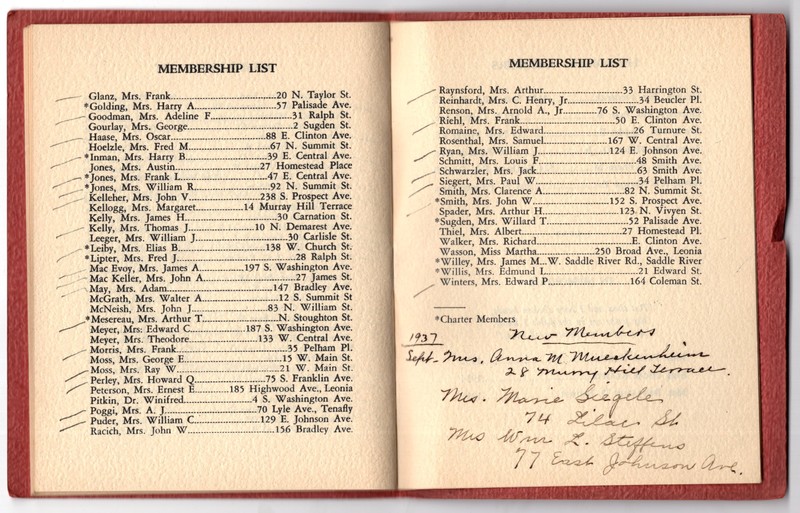 MEMBERSHIP LIST
Glanz, Mrs. Frank....20 N. Taylor St.
*Golding, Mrs. Harry A....57 Palisade Ave.
Goodman, Mrs. Adeline F....31 Ralph St.
Gourlay, Mrs. George....2 Sugden St.
Haase, Mrs. Oscar....88 E. Clinton Ave.
Hoelzle, Mrs. Fred M....67 N. Summit St.
*Inman, Mrs. Harry B....39 E. Central Ave.
Jones, Mrs. Austin....27 Homestead Place
*Jones, Mrs. Frank L....47 E. Central Ave.
*Jones, Mrs. William R....92 N. Summit St.
Kelleher, Mrs. John V....238 S. Prospect Ave.
Kellogg, Mrs. Margaret....14 Murray Hill Terrace
Kelly, Mrs. James H....30 Carnation St.
Kelly, Mrs. Thomas J....10 N. Demarest Ave.
Leeger, Mrs. William J....30 Carlisle St.
*Leiby, Mrs. Elias B....138 W. Church St.
*Lipter, Mrs. Fred J....28 Ralph St.
Mac Evoy, Mrs. James A....197 S. Washington Ave.
Mac Keller, Mrs. John A....27 James St.
May, Mrs. Adam....147 Bradley Ave.
McGrath, Mrs. Walter A....12 S. Summit St
McNeish, Mrs. John J....83 N. William St.
*Mesereau, Mrs. Arthur T....N. Stoughton St.
Meyer, Mrs. Edward C....187 S. Washington Ave.
Meyer, Mrs. Theodore....133 W. Central Ave.
Morris, Mrs. Frank....35 Pelham Pl.
Moss, Mrs. George E....15 W. Main St.
Moss, Mrs. Ray W....21 W. Main St.
Perley, Mrs. Howard Q....75 S. Franklin Ave.
Peterson, Mrs. Ernest E....185 Highwood Ave., Leonia
Pitkin, Dr. Winifred....4 S. Washington Ave.
Poggi, Mrs. A. J....70 Lyle Ave., Tenafly
Puder, Mrs. William C....129 E. Johnson Ave.
Racich, Mrs. John W....156 Bradley Ave.
MEMBERSHIP LIST
Raynsford, Mrs. Arthur....33 Harrington St.
Reinhardt, Mrs. C. Henry, Jr....34 Beucler Pl.
Renson, Mrs. Arnold A., Jr....76 S. Washington Ave.
Riehl, Mrs. Frank....50 E. Clinton Ave.
Romaine, Mrs. Edward....26 Turnure St.
Rosenthal, Mrs. Samuel....167 W. Central Ave.
Ryan, Mrs. William J....124 E. Johnson Ave.
Schmitt, Mrs. Louis F....48 Smith Ave.
Schwarzler, Mrs. Jack....63 Smith Ave.
Siegert, Mrs. Paul W....34 Pelham Pl.
Smith, Mrs. Clarence A....82 N. Summit St.
*Smith, Mrs. John W....152 S. Prospect Ave.
Spader, Mrs. Arthur H....123 N. Vivyen St.
*Sugden, Mrs. Willard T....52 Palisade Ave.
Thiel, Mrs. Albert....27 Homestead Pl.
Walker, Mrs. Richard....E. Clinton Ave.
Wasson, Miss Martha....250 Broad Ave., Leonia
*Willey, Mrs. James M...W. Saddle River Rd., Saddle River
*Willis, Mrs. Edmund L....21 Edward St.
Winters, Mrs. Edward P....164 Coleman St.
*Charter Members
1937 New Members
Sept- Mrs. Anna M. Mueskenheim
28 Murry Hill Terrace.
Mrs. Marie Siegeler
74 Lilac St
Mrs Wm L. Steffens
77 East Johnson Ave.